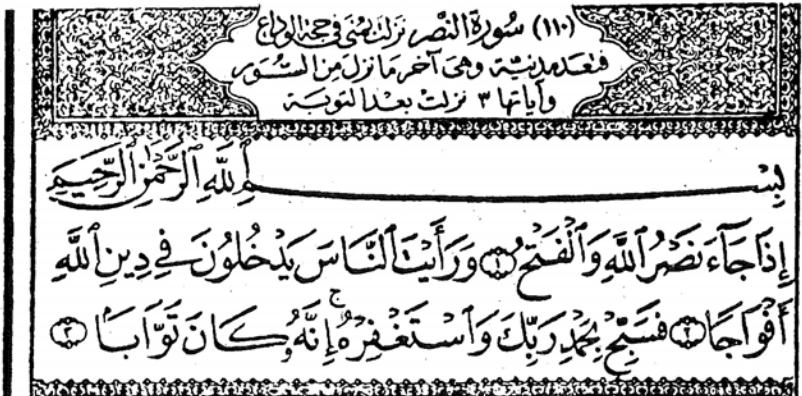 (١١٠) سُورَةُ النَّصْرِ نَزَلَتْ بِمِنًى فِى حَجَّةِ الْوَدَاعِ
فَتُعَدُّ مَدَنِيَّةً وَهِىَ آخِرُ مَا نَزَلَ مِنَ السُّوَرِ
وَآيَاتُهَا ٣ نَزَلَتْ بَعْدَ التَّوْبَةِ
بِسْمِ ٱللَّهِ ٱلرَّحْمَٰنِ ٱلرَّحِيمِ
إِذَا جَآءَ نَصْرُ ٱللَّهِ وَٱلْفَتْحُ ١ وَرَأَيْتَ ٱلنَّاسَ يَدْخُلُونَ فِى دِينِ ٱللَّهِ
أَفْوَاجًا ٢ فَسَبِّحْ بِحَمْدِ رَبِّكَ وَٱسْتَغْفِرْهُ ۚ إِنَّهُۥ كَانَ تَوَّابَۢا ٣